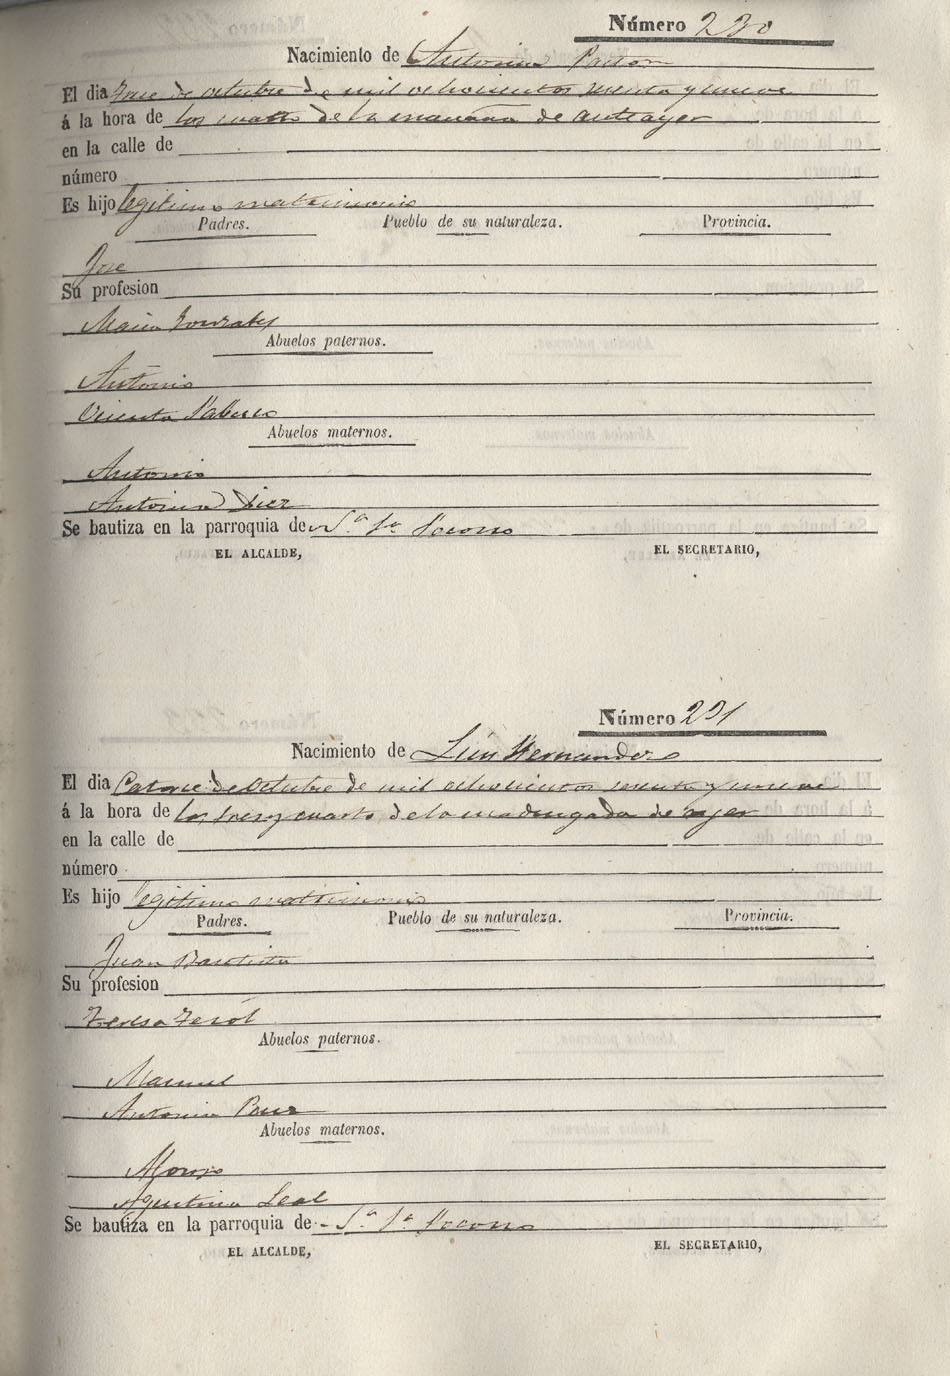 Número 230
Nacimiento de Antonia Pastor
El dia Trece de octubre de mil ochocientos sesenta y nueve
á la hora de las cuatro de la mañana de antiayer
en la calle de
número
Es hijo legitimo matrimonio
Padres. Pueblo de su naturaleza. Provincia.
Jose
Su profesion
Maria Gonzales
Abuelos paternos.
Antonio
Vicenta
Abuelos maternos.
Antonio
Antonia Diez
Se bautiza en la parroquia de Socorro
EL ALCALDE, EL SECRETARIO,
Número 231
Nacimiento de Luis Hernandez
El dia Catorce de Octubre de mil ochocientos sesenta y nueve
á la hora de las tres y cuarto de la madrugada de ayer
en la calle de
número
Es hijo legitimo matrimonio
Padres. Pueblo de su naturaleza. Provincia.
Juan Bautista
Su profesion
Teresa Terol
Abuelos paternos.
Manuel
Antonia
Abuelos maternos.
Alonso
Agustina Leal
Se bautiza en la parroquia de Socorro
EL ALCALDE, EL SECRETARIO,